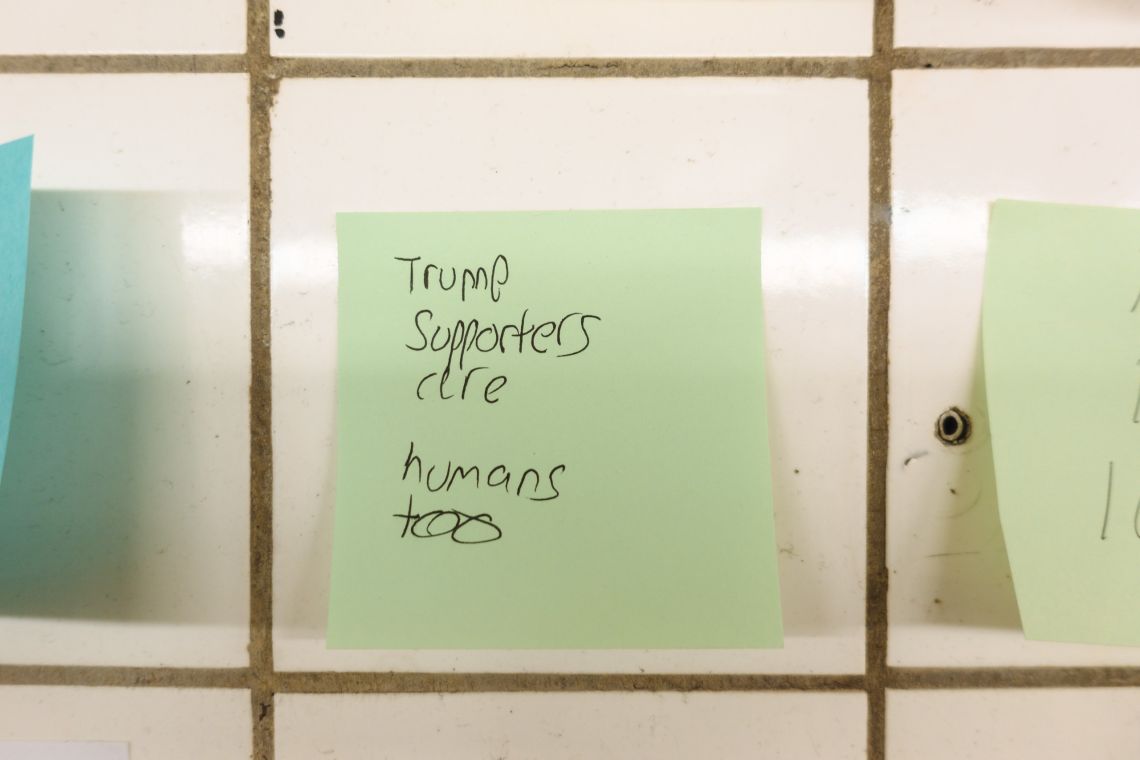 Trump
Supporters
are
humans
too